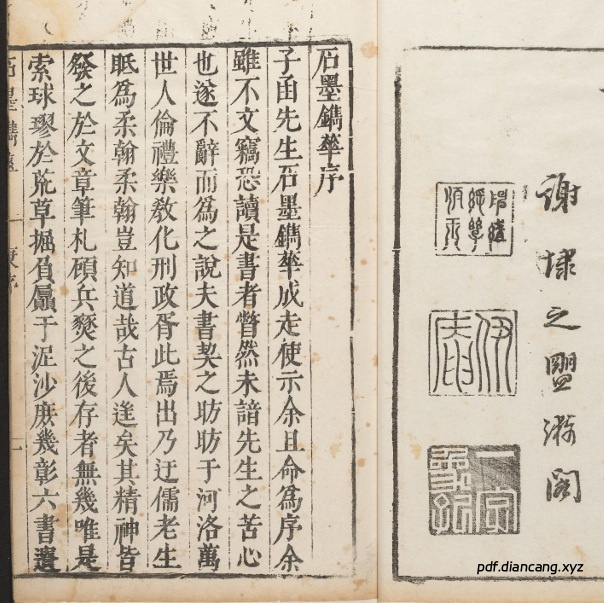 謝之盟漪閣
石墨鐫華序
子函先生石墨鐫華成走使示余且命為序余
雖不文竊恐讀是書者瞥然未諳先生之苦心
也遂不辭而為之說夫書契之昉昉于河洛萬
世人倫禮樂教化刑政胥此焉出乃迂儒老生
眂為柔翰柔翰豈知道哉古人逺矣其精神皆
發之於文章筆札頋兵燹之後存者無幾唯是
索球璆於荒草掘負屭于泥沙庻幾彰六書遺
石墨鐫華
一
pdf.diancang.xyz